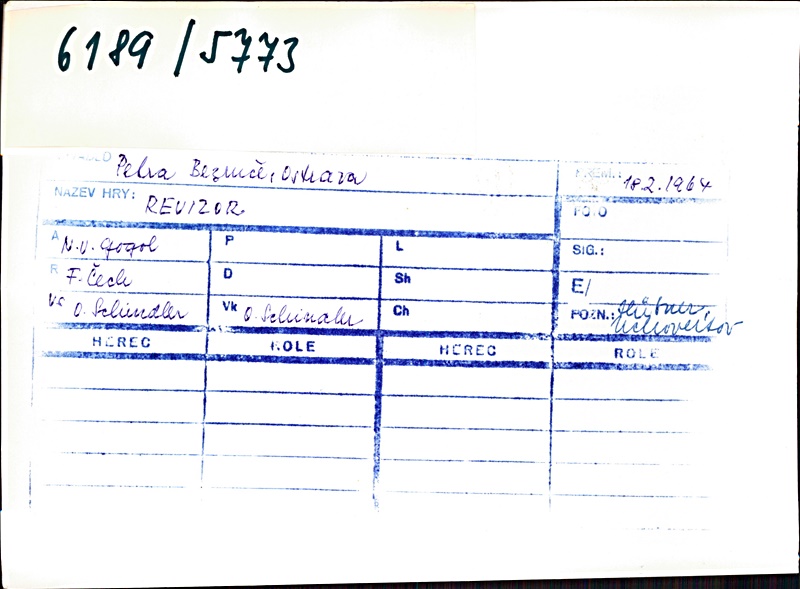 6189/5773
DIVADLO Petra Bezruče, Ostrava
PREM.: 18.2.1964
NÁZEV HRY: REVIZOR
FOTO
A N.V. Gogol P L SIG.:
R F. Čech D Sh E/
Vs O. Schindler Vk O. Schindler Ch POZN.: Hübner,
HEREC ROLE HEREC ROLE